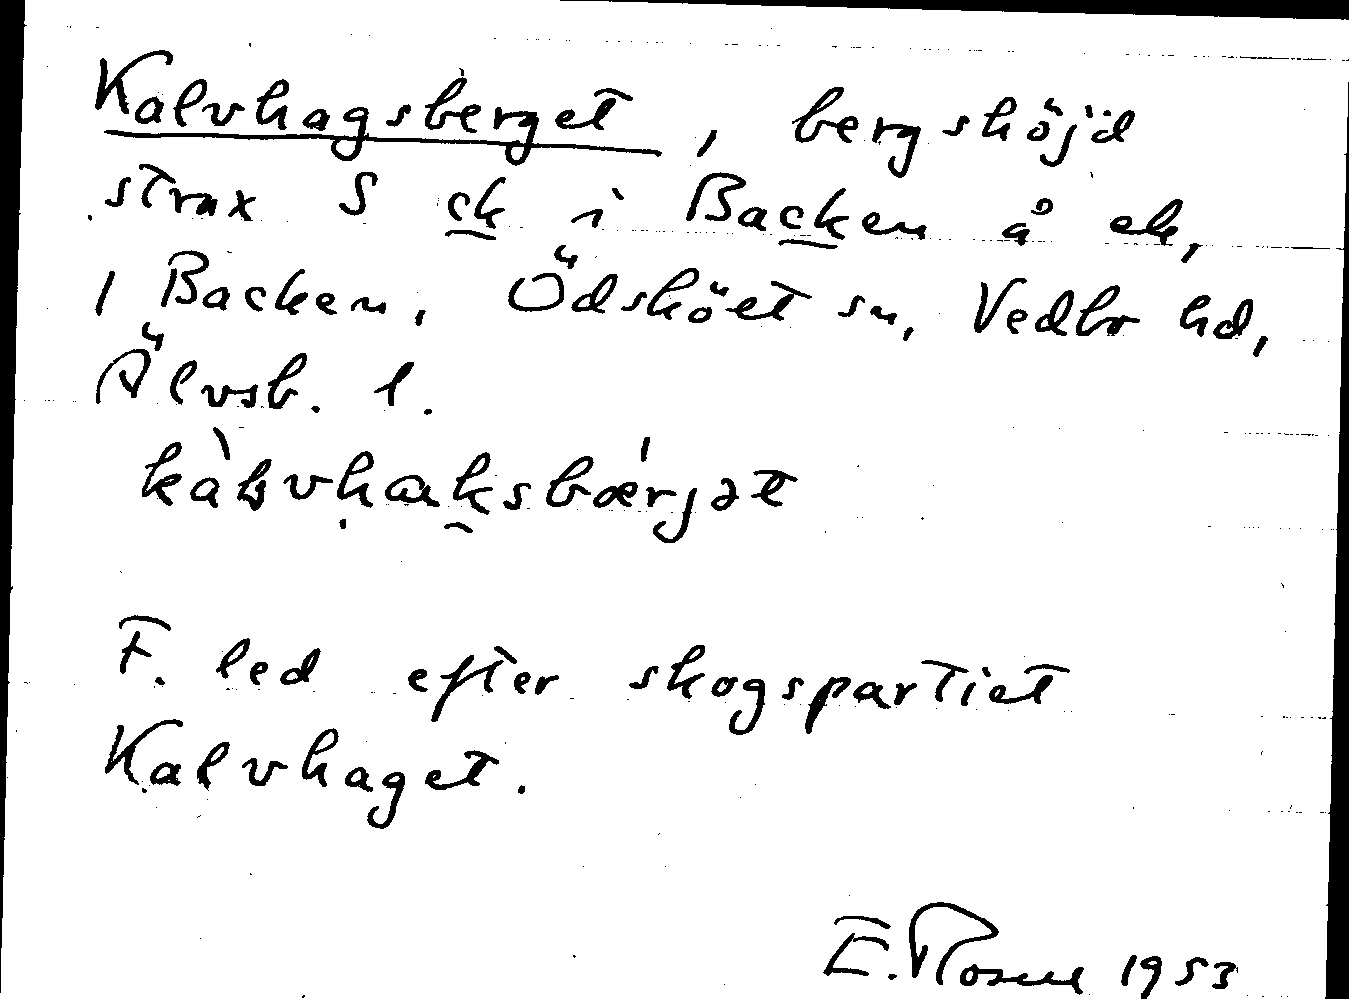 Kalvhagsberget, bergshöjd
strax S ck i Backen å ek,
i Backen, Ödsköet sn, Vedbo hd,
Älvsb. l.
F. led efter skogspartiet
Kalvhaget.
E. 1953